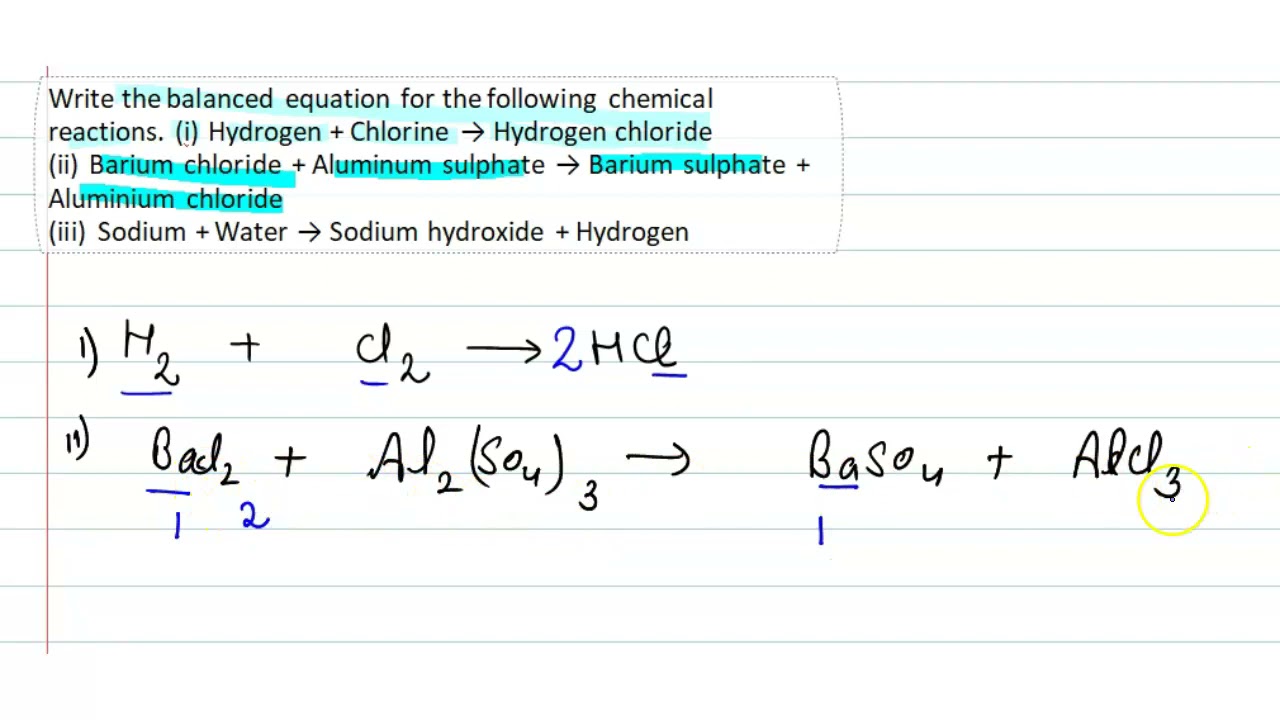 Write the balanced equation for the following chemical
reactions. (i) Hydrogen + Chlorine → Hydrogen chloride
(ii) Barium chloride + Aluminum sulphate → Barium sulphate +
Aluminium chloride
(iii) Sodium + Water → Sodium hydroxide + Hydrogen
i) H₂ + Cl₂ → 2HCl
ii) BaCl₂ + Al₂(SO₄)₃ → BaSO₄ + AlCl₃
1 2 1